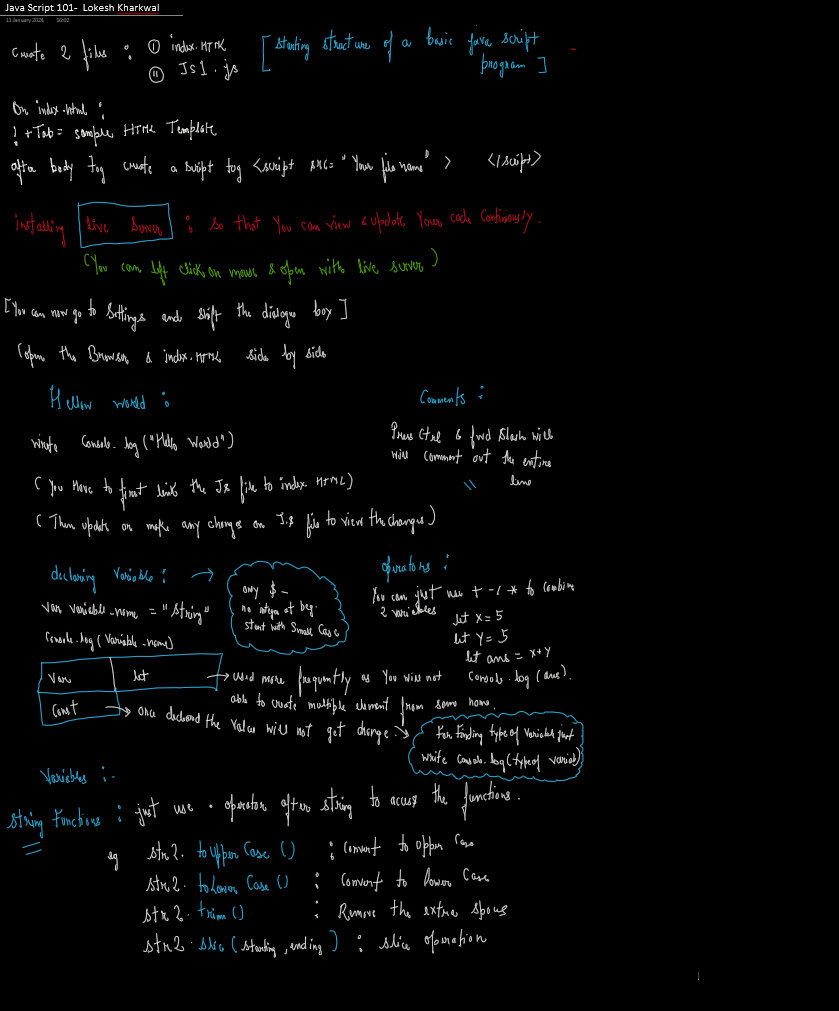 Java Script 101- Lokesh Kharkwal
11 January 2024 16:02
Create 2 files : (i) index.HTML [ starting structure of a basic java script
(ii) JS1.js program ]
On index.html :
! +Tab = sample HTML Template
after body tag create a script tag <script src= "Your file name" > </script>
installing Live Server : so that You can view & update Your code Continously.
(You can left click on mouse & open with live server)
[You can now go to Settings and shift the dialogue box ]
(open the Browser & index.HTML side by side
Hellow world :
write Console.log("Hello World")
( You Have to first link the JS file to index HTML)
( Then update or make any changes on J.S file to view the changes)
Comments :
Press Ctrl & fwd Slash will
will comment out the entire
\\ line
declaring Variable : →
Var variable_name = "String"
Console.log(Variable_name)
only $ _
no integer at beg.
start with Small Case
operators :
You can just use + - / * to combine
2 variables
let X = 5
let Y = 5
let ans = x+y
Console.log(ans).
Var let → used more frequently as You will not
able to create multiple element from same name.
Const → once declared the Value will not get change. →
For Finding type of Variables just
write Console.log(typeof variabl)
Variables :-
String Functions : just use . operator after string to access the functions.
eg str2. toUpperCase () : Convert to Upper Case
str2. toLowerCase () : Convert to Lower Case
str2. trim () : Remove the extra spaces
str2. slic ( starting , ending ) : slice operation